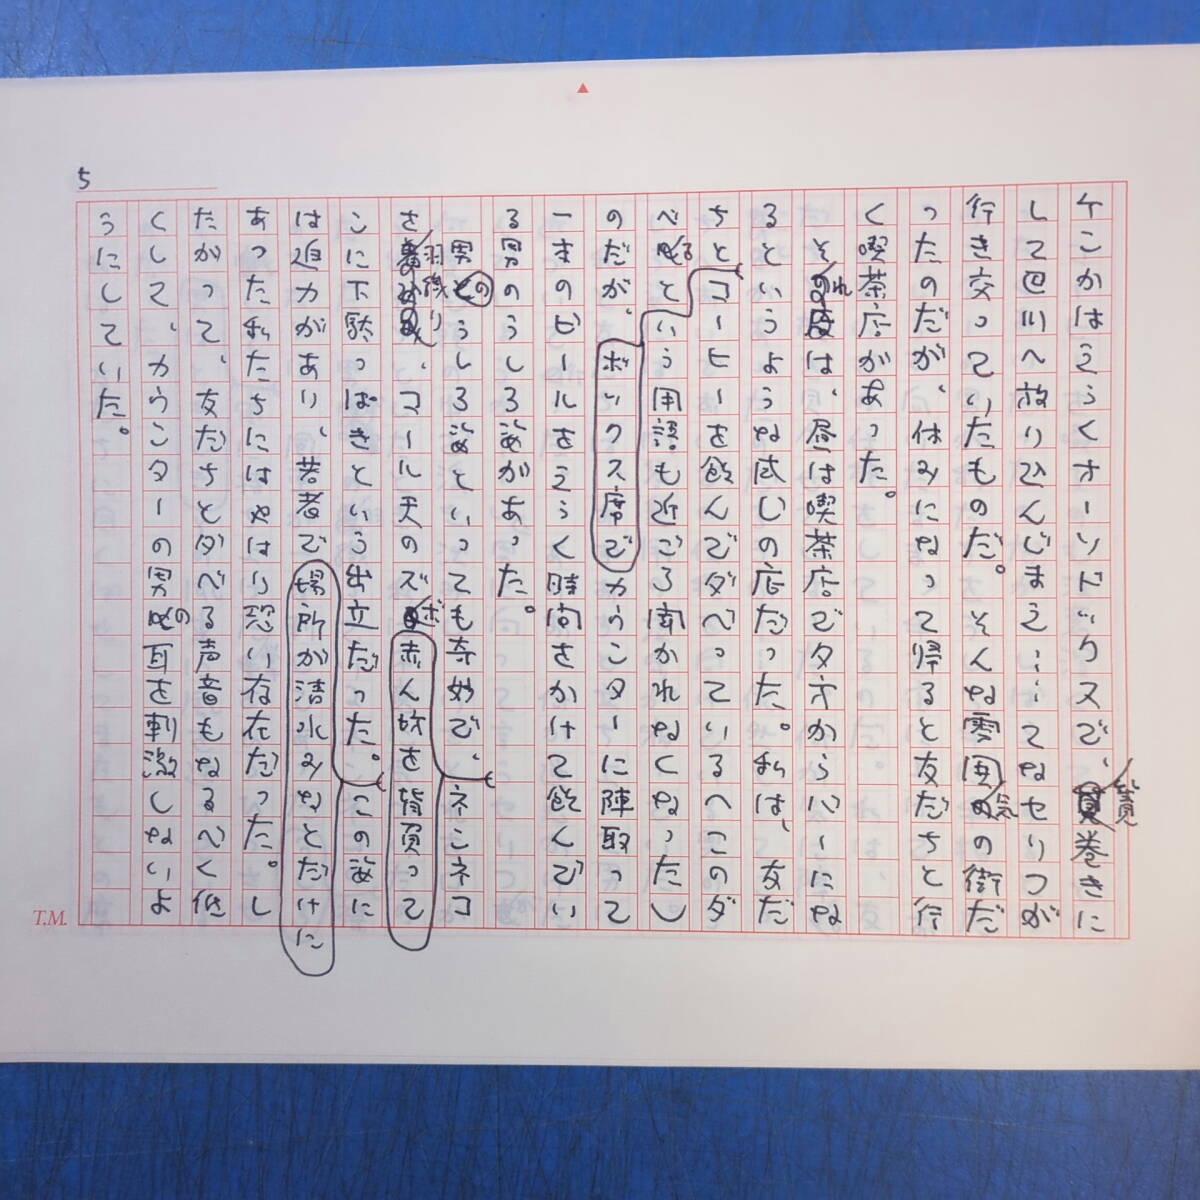 5
ケンカはえらくオーソドックスで、簀巻きに
して〓川へ放り込んじまえ……てなセリフが
行き交っていたものだ。そんな雰囲気の街だ
ったのだが、休みになって帰ると友だちと行
く喫茶店があった。
それは、昼は喫茶店で夕方からバーにな
るというような感じの店だった。私は、友だ
ちとボックス席でコーヒーを飲んでダべっているへこのダ
べるという用語も近ごろ聞かれなくなったし
のだが、カウンターに陣取って
一本のビールをえらく時間をかけて飲んでい
る男のうしろ姿があった。
男のうしろ姿といっても奇妙で、赤ん坊を背負って
ネンネコ
さ羽織り、コール天のズボ
ンに下駄っぱきという出立だった。場所が清水みなとだけに
この姿に
は迫力があり、若者で
あった私たちにはやはり恐い存在だった。し
たがって、友だちとダべる声音もなるべく低
くして、カウンターの男の耳を刺激しないよ
うにしていた。
T.M.